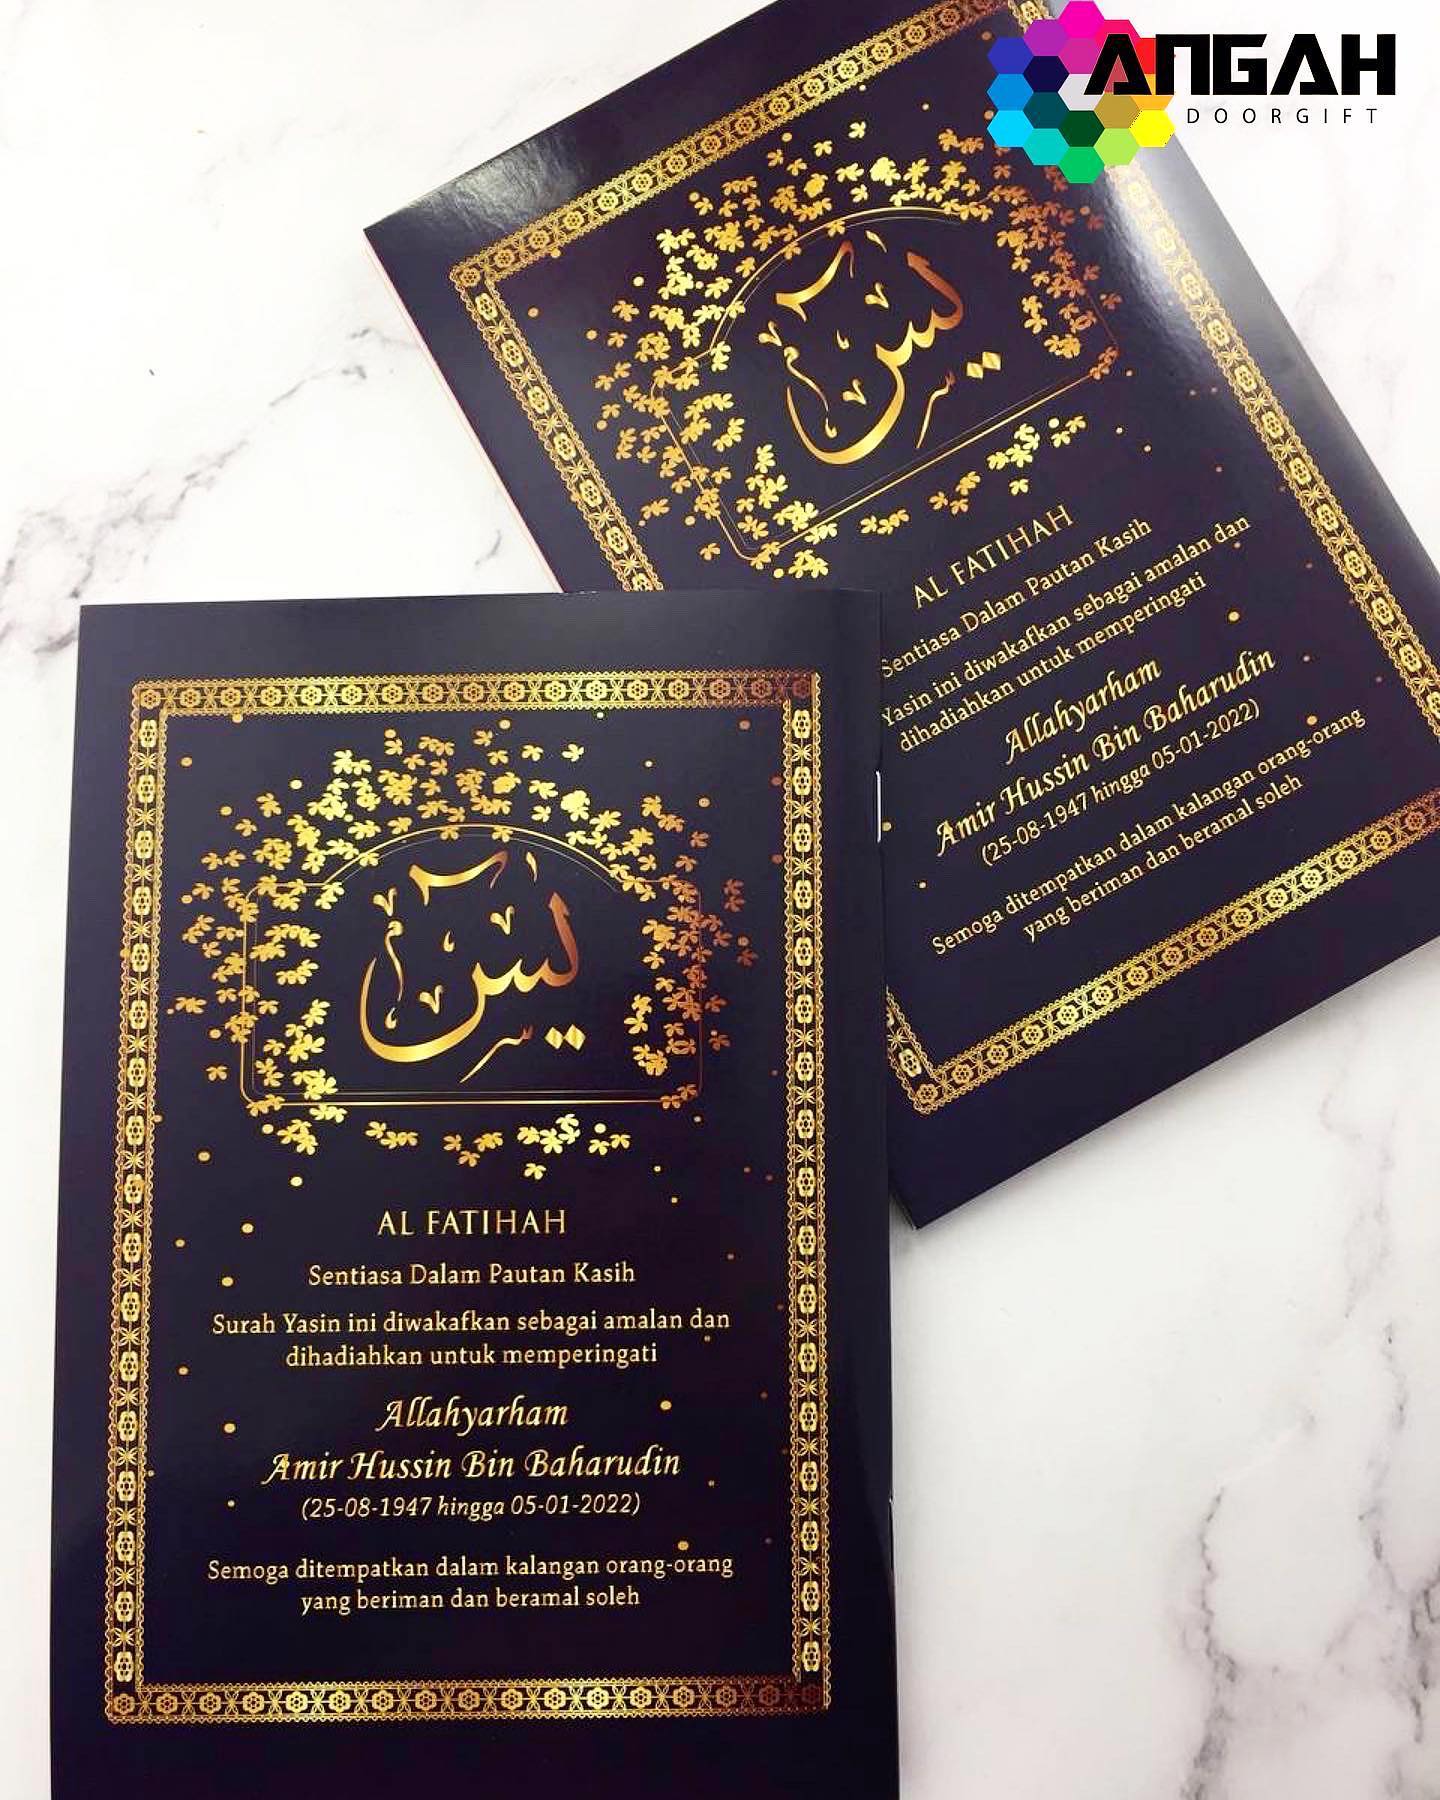 ANGAH
DOORGIFT
يس
AL FATIHAH
Sentiasa Dalam Pautan Kasih
Yasin ini diwakafkan sebagai amalan dan
dihadiahkan untuk memperingati
Allahyarham
Amir Hussin Bin Baharudin
(25-08-1947 hingga 05-01-2022)
Semoga ditempatkan dalam kalangan orang-orang
yang beriman dan beramal soleh
يس
AL FATIHAH
Sentiasa Dalam Pautan Kasih
Surah Yasin ini diwakafkan sebagai amalan dan
dihadiahkan untuk memperingati
Allahyarham
Amir Hussin Bin Baharudin
(25-08-1947 hingga 05-01-2022)
Semoga ditempatkan dalam kalangan orang-orang
yang beriman dan beramal soleh